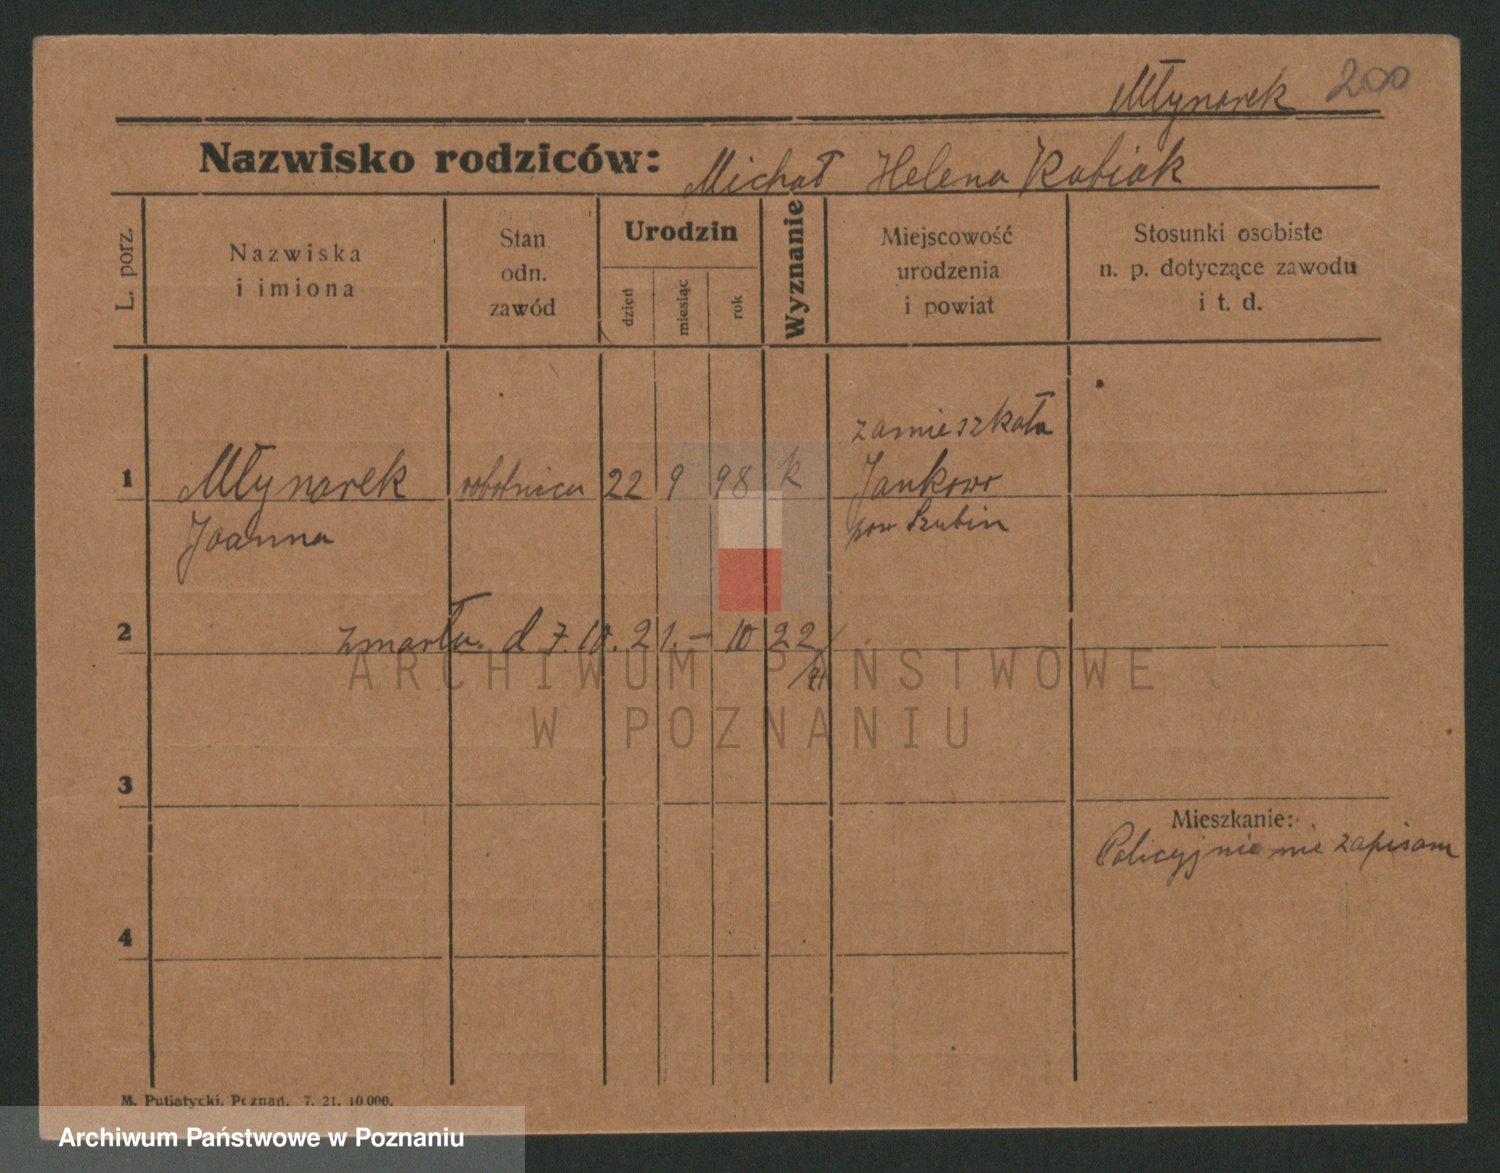 Młynarek 200
Nazwisko rodziców: Michał Helena Kubiak
L. porz.
Nazwiska
i imiona
Stan
odn.
zawód
Urodzin
dzień
miesiąc
rok
Wyznanie
Miejscowość
urodzenia
i powiat
Stosunki osobiste
n. p. dotyczące zawodu
i t. d.
zamieszkała
1 Młynarek robotnica 22 9 98 k Jankowo
Joanna pow Szubin
2 zmarła d 7.10.21.- 10 22/
21
ARCHIWUM PAŃSTWOWE
W POZNANIU
3
Mieszkanie:
Policyjnie nie zapisana
4
M. Putiatycki, Poznań. 7. 21. 10 000.
Archiwum Państwowe w Poznaniu